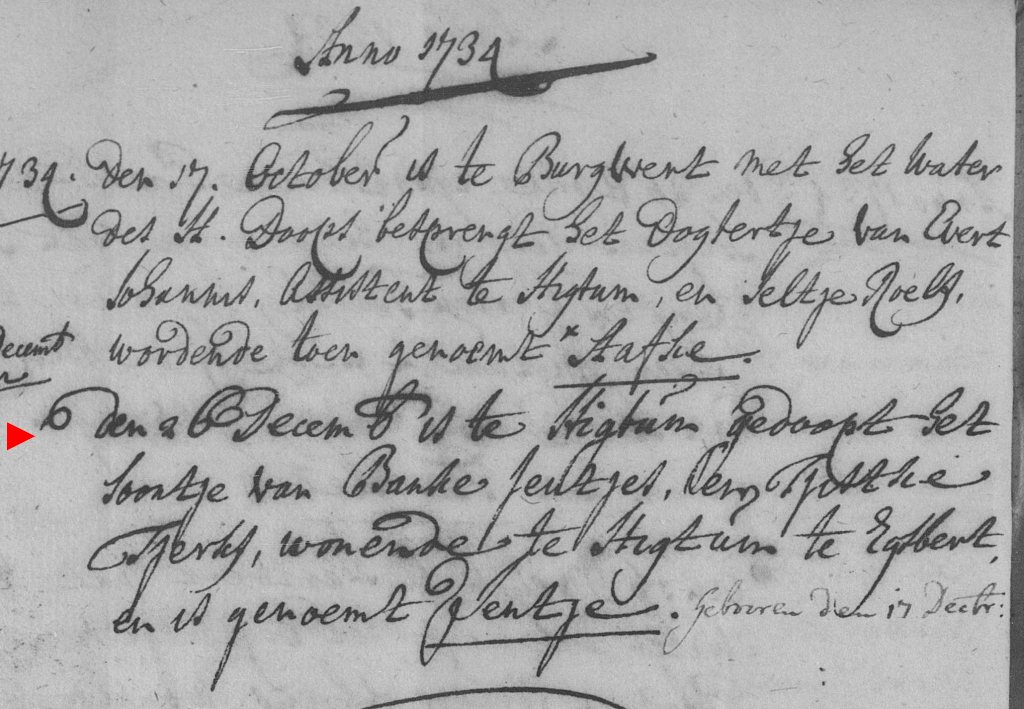 Anno 1734
1734. den 17. October is te Burgwert met het water
des H. Doops besprengt het Dogtertje van Evert
Johannis, Assistent te Higtum, en Jeltje Roelfs,
Decemb wordende toen genoemt * Hafke.
den 26 Decemb is te Higtum gedoopt het
soontje van Banke Jentjes, en Tjitske
Tjerks, wonende te Higtum te Egsbert,
en is genoemt Jentje. geboren den 17 Decbr: